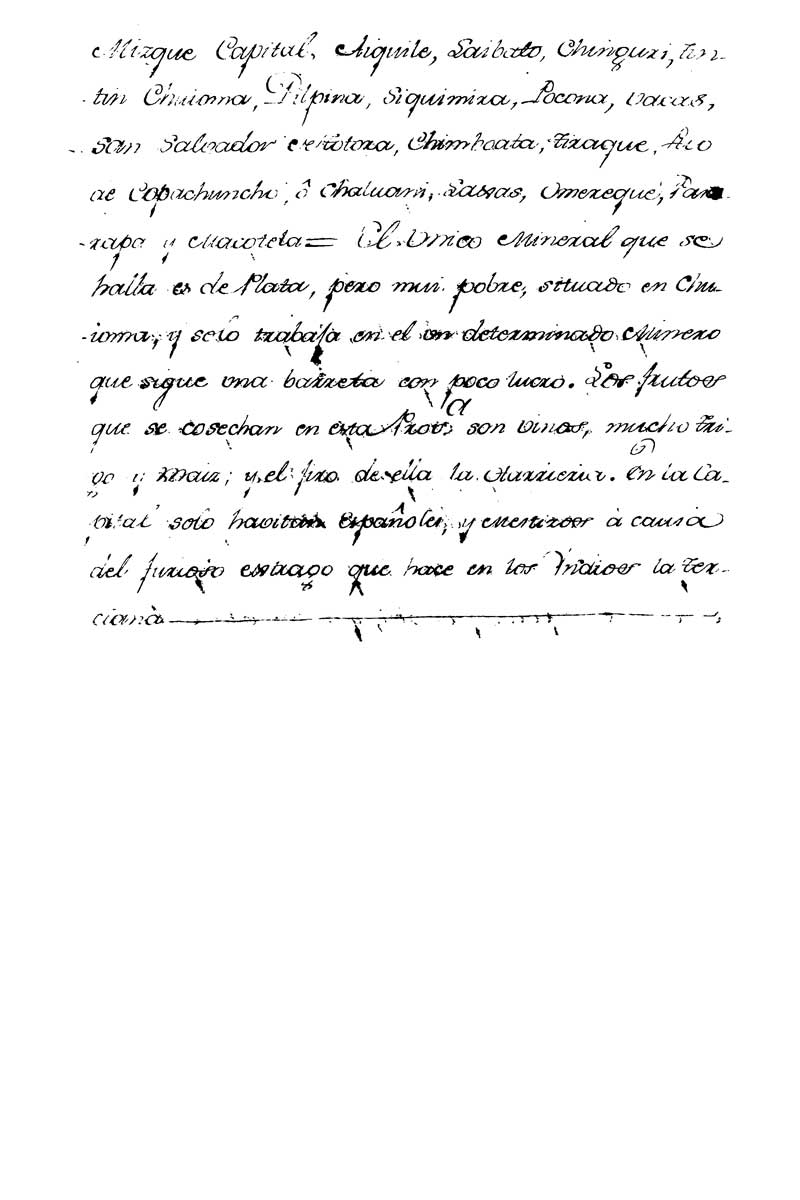 Mizque Capital, Aiquile, Laibato, Chinguri, tin-
tin Chuioma, Pilpina, Siquimira, Pocona, vacas,
San Salvador de totora, Chimboata, tiraque, Rio
de Copachuncho, ô Chaluani, Omereque, Para
rapa y = El Unico Mineral que se
halla es de Plata, pero mui pobre, situado en Chu-
ioma, y solo trabaja en el un determinado Minero
que sigue una barreta con poco lucro. Los frutos
que se cosechan en esta Prov.a son vinos, mucho tri-
go y Maiz; y el giro de ella la Harrieria. En la Ca-
pital solo havitan Españoles, y Mestizos à causa
del furioso estrago que hace en los Yndios la ter-
ciana